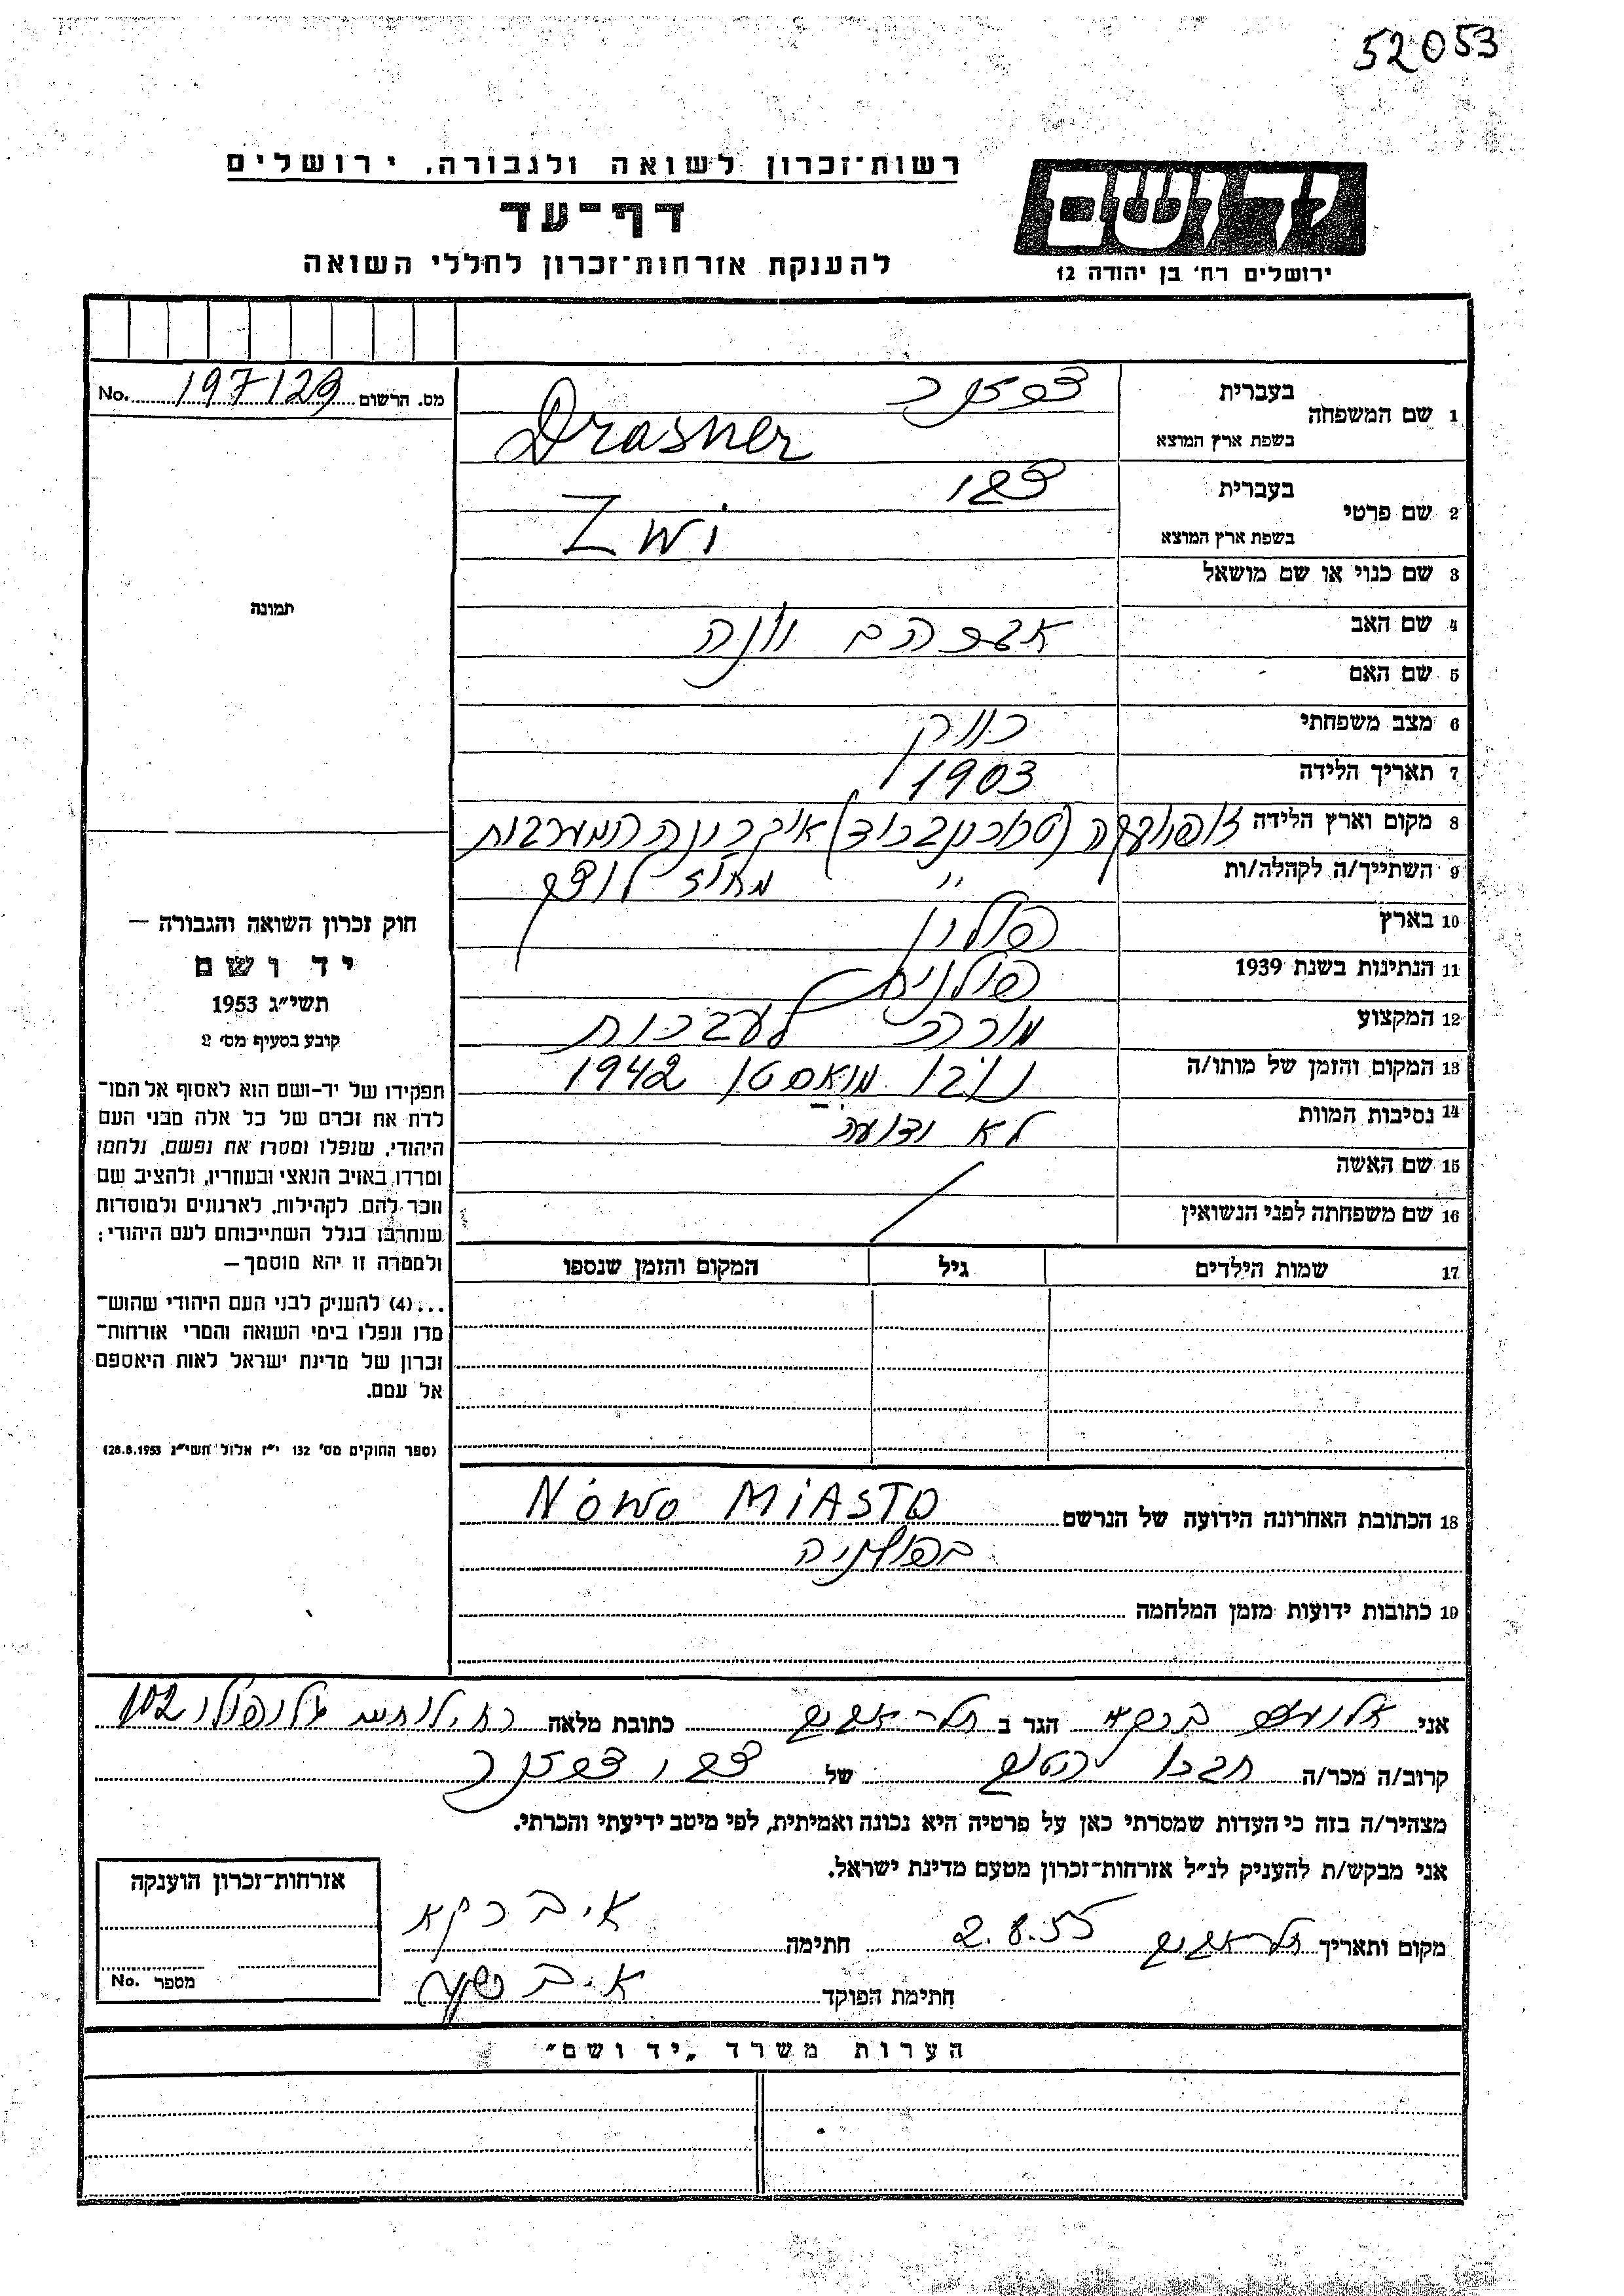 52053
רשות־זכרון לשואה ולגבורה, ירושלים
דף־עד
להענקת אזרחות־זכרון לחללי השואה
יד ושם
ירושלים רח' בן יהודה 12
מס. הרשום 197129 No.
1 שם המשפחה
בעברית
בשפת ארץ המוצא Drasner
2 שם פרטי
בעברית צבי
בשפת ארץ המוצא Zwi
3 שם כנוי או שם מושאל
4 שם האב אברהם יונה
5 שם האם
6 מצב משפחתי רווק
7 תאריך הלידה 1903
8 מקום וארץ הלידה
9 השתייך/ה לקהלה/ות " מחוז
10 בארץ פולין
11 הנתינות בשנת 1939 פולנית
12 המקצוע מורה לעברית
13 המקום והזמן של מותו/ה נובו מיאסטו 1942
14 נסיבות המוות לא ידוע
15 שם האשה
16 שם משפחתה לפני הנשואין
17 שמות הילדים גיל המקום והזמן שנספו
18 הכתובת האחרונה הידועה של הנרשם NOWO MIASTO
בפולניה
19 כתובות ידועות מזמן המלחמה
תמונה
חוק זכרון השואה והגבורה —
יד ושם
תשי״ג 1953
קובע בסעיף מס' 2
תפקידו של יד-ושם הוא לאסוף אל המו־
לדת את זכרם של כל אלה מבני העם
היהודי, שנפלו ומסרו את נפשם, נלחמו
ומרדו באויב הנאצי ובעוזריו, ולהציב שם
וזכר להם, לקהילות, לארגונים ולמוסדות
שנחרבו בגלל השתייכותם לעם היהודי;
ולמטרה זו יהא מוסמך —
...(4) להעניק לבני העם היהודי שהוש־
מדו ונפלו בימי השואה והמרי אזרחות־
זכרון של מדינת ישראל לאות היאספם
אל עמם.
(ספר החוקים מס' 132 י״ז אלול תשי״ג 28.8.1953)
אני הגר ב תל־אביב כתובת מלאה 102
קרוב/ה מכר/ה של צבי
מצהיר/ה בזה כי העדות שמסרתי כאן על פרטיה היא נכונה ואמיתית, לפי מיטב ידיעתי והכרתי.
אני מבקש/ת להעניק לנ״ל אזרחות־זכרון מטעם מדינת ישראל.
מקום ותאריך תל־אביב 2.8.55 חתימה
חתימת הפוקד
אזרחות־זכרון הוענקה
מספר No.
הערות משרד „יד ושם״